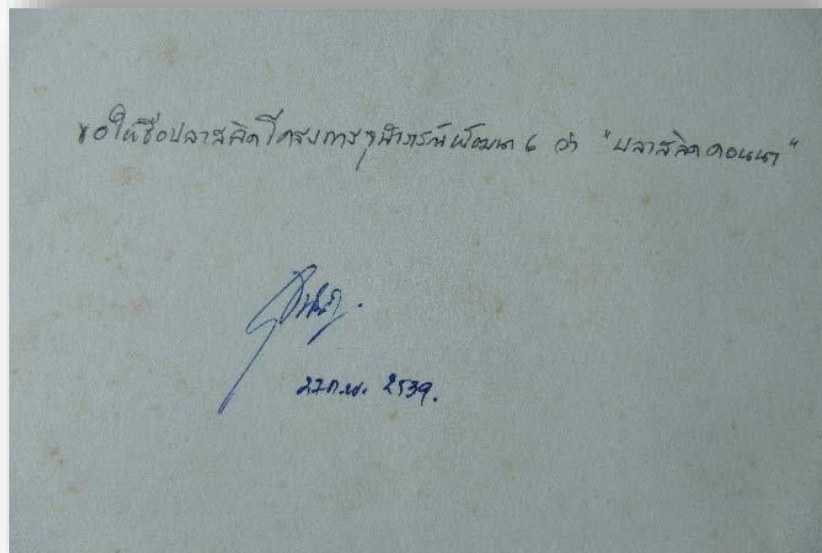 ขอให้ชื่อปลาสลิดโครงการจุฬาภรณ์พัฒนา 6 ว่า "ปลาสลิดดอนนา"
27 ก.พ. 2539.